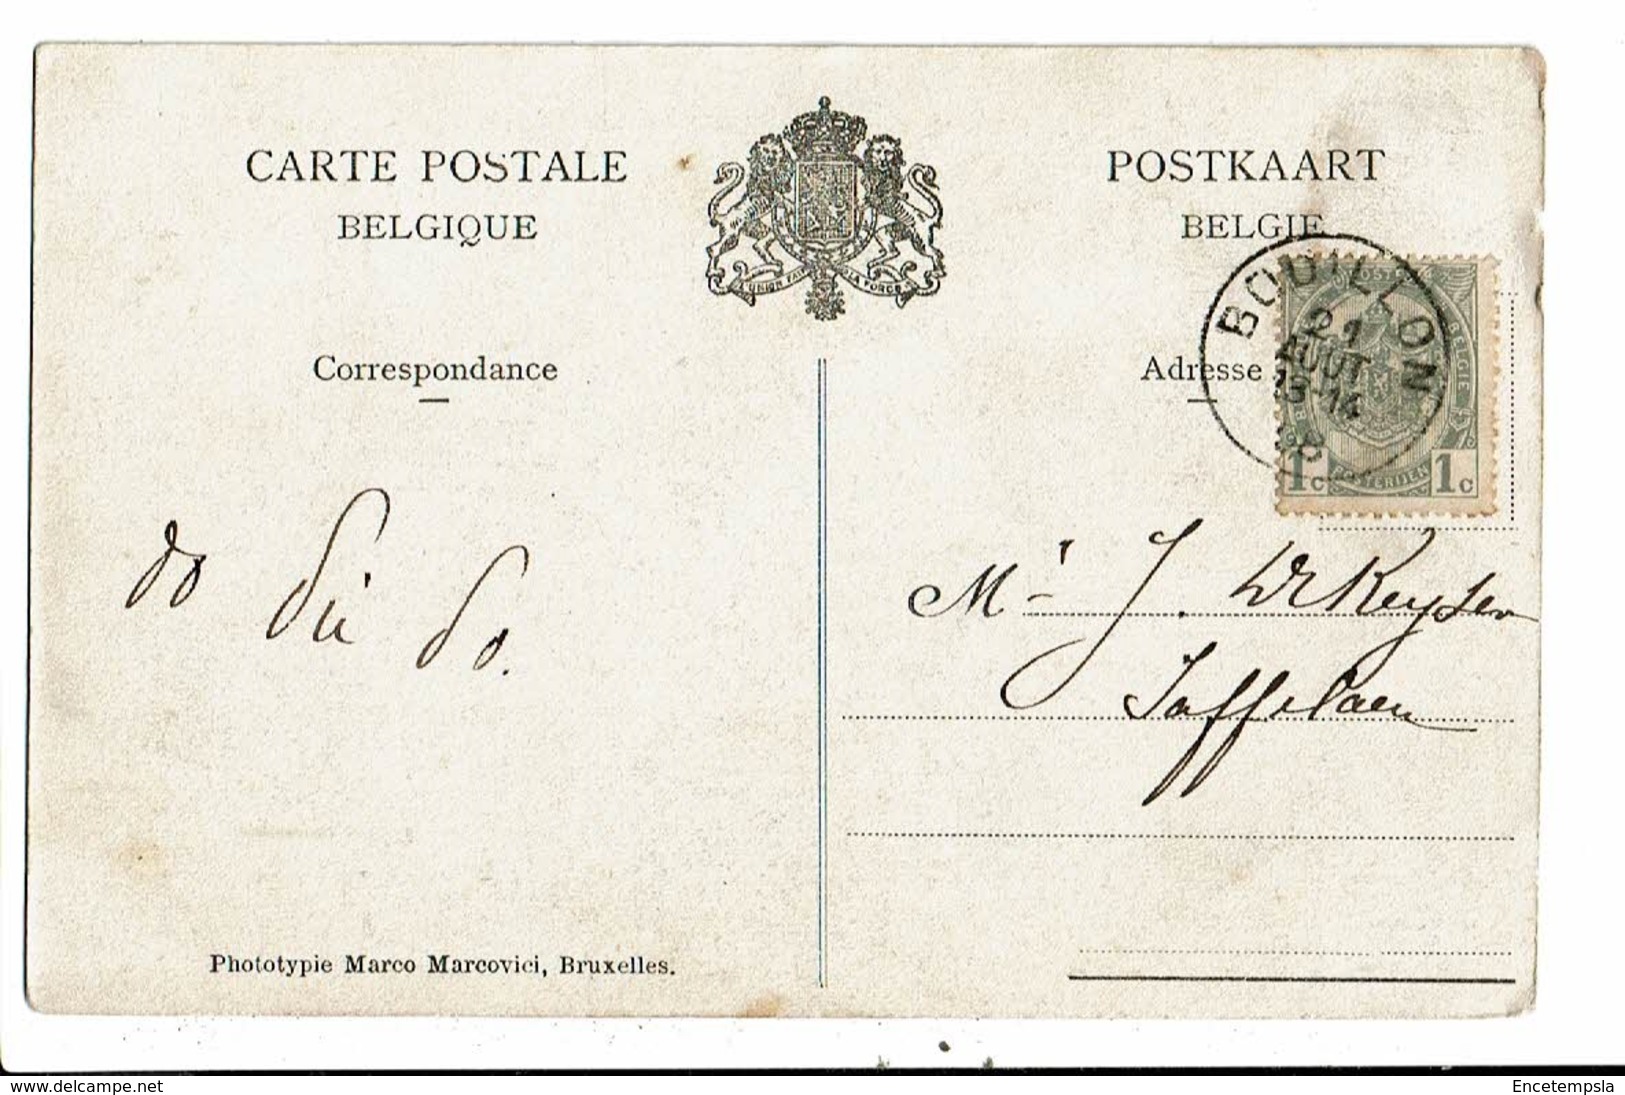 CARTE POSTALE
BELGIQUE
POSTKAART
BELGIE
L'UNION FAIT LA FORCE
BOUILLON
21
AOUT
13-14
BELGIE
1c POSTERIJEN 1c
Correspondance
Adresse
do
Mr J. De Keyser
Taffelaen
Phototypie Marco Marcovici, Bruxelles.
www.delcampe.net
Encetempsla